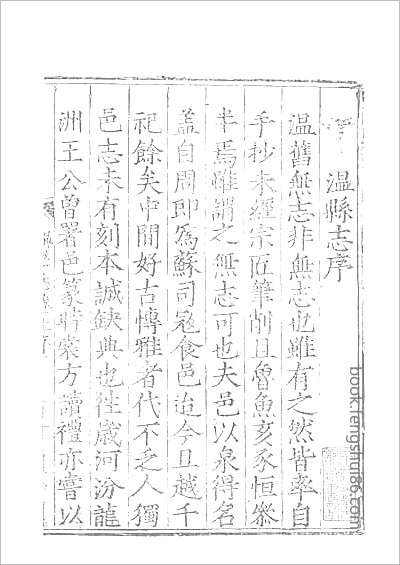 溫縣志序
溫舊無志非無志也雖有之然皆率自
手抄未經宗匠筆削且魯魚亥豕恒叅
半焉雖謂之無志可也夫邑以泉得名
盖自周即為蘇司冦食邑迨今且越千
祀餘矣中間好古愽雅者代不乏人獨
邑志未有刻本誠缺典也徃歲河汾龍
洲王公曾署邑篆時棠方讀禮亦嘗以
book.fengshui86.com